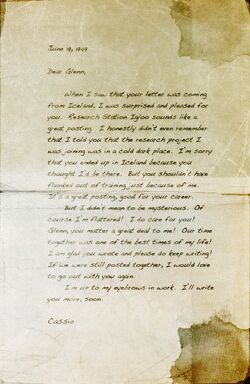 June 19, 1949
Dear Glenn,
When I saw that your letter was coming
from Iceland, I was surprised and pleased for
you. Research Station Igloo sounds like a
great posting. I honestly didn't even remember
that I told you that the research project I
was joining was in a cold dark place. I'm sorry
that you ended up in Iceland because you
thought I'd be there. But you shouldn't have
flunked out of training just because of me.
It's a great posting, good for your career.
But I didn't mean to be mysterious. Of
course I'm flattered! I do care for you!
Glenn, you matter a great deal to me! Our time
together was one of the best times of my life!
I am glad you wrote and please do keep writing!
If we were still posted together, I would love
to go out with you again.
I'm up to my eyebrows in work. I'll write
you more, soon.
Cassie